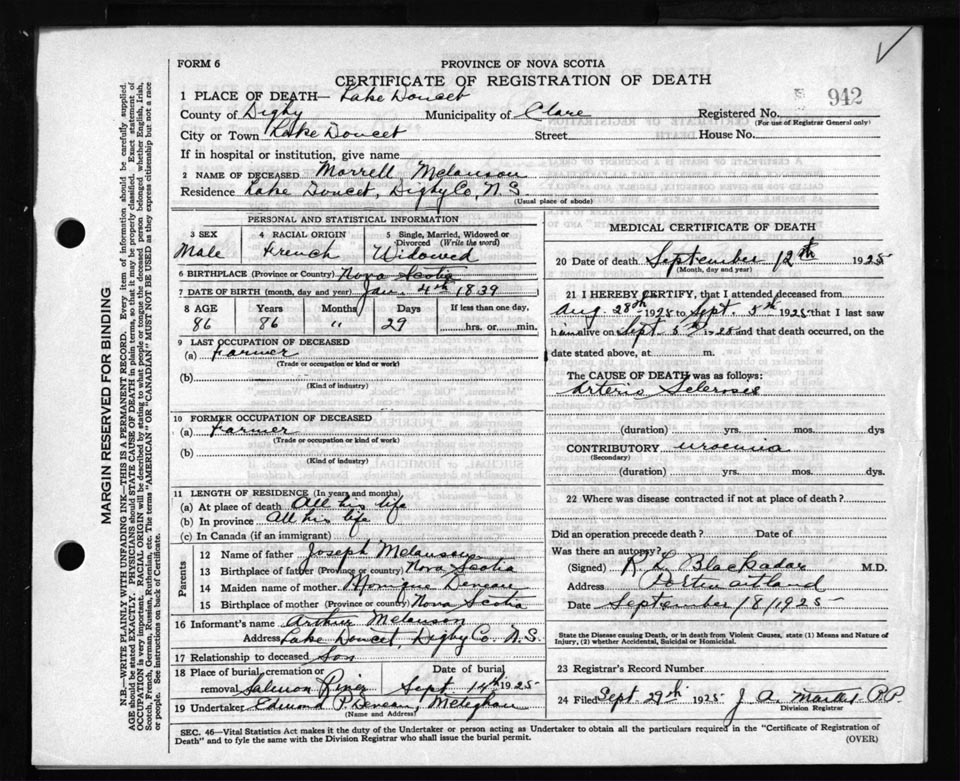 FORM 6
PROVINCE OF NOVA SCOTIA
CERTIFICATE OF REGISTRATION OF DEATH
942
1 PLACE OF DEATH— Lake Doucet
County of Digby Municipality of Clare Registered No.
(For use of Registrar General only)
City or Town Lake Doucet Street House No.
If in hospital or institution, give name
2 NAME OF DECEASED Morrell Melanson
Residence Lake Doucet, Digby Co, N.S
(Usual place of abode)
PERSONAL AND STATISTICAL INFORMATION
3 SEX 4 RACIAL ORIGIN 5 Single, Married, Widowed or Divorced (Write the word)
Male French Widowed
6 BIRTHPLACE (Province or Country) Nova Scotia
7 DATE OF BIRTH (month, day and year) Jan 4th 1839
8 AGE Years Months Days If less than one day.
86 86 " 29 hrs. or min.
9 LAST OCCUPATION OF DECEASED
(a) Farmer
(Trade or occupation or kind of work)
(b)
(Kind of industry)
10 FORMER OCCUPATION OF DECEASED
(a) Farmer
(Trade or occupation or kind of work)
(b)
(Kind of industry)
11 LENGTH OF RESIDENCE (In years and months)
(a) At place of death All his life
(b) In province All his life
(c) In Canada (if an immigrant)
Parents
12 Name of father Joseph Melanson
13 Birthplace of father (Province or country) Nova Scotia
14 Maiden name of mother Monique Deveau
15 Birthplace of mother (Province or country) Nova Scotia
16 Informant's name Arthur Melanson
Address Lake Doucet, Digby Co. N.S.
17 Relationship to deceased Son
18 Place of burial, cremation or removal Salmon River Date of burial Sept 14th 1925
19 Undertaker Edmond P Deveau, Meteghan
(Name and Address)
MEDICAL CERTIFICATE OF DEATH
20 Date of death September 12th 1925
(Month, day and year)
21 I HEREBY CERTIFY, that I attended deceased from
Aug 28th 1925 to Sept. 5th 1925 that I last saw
him alive on Sept 5th 1925 and that death occurred, on the
date stated above, at m.
The CAUSE OF DEATH was as follows:
Arterio Sclerosis
(duration) yrs. mos. dys
CONTRIBUTORY uraemia
(Secondary)
(duration) yrs. mos. dys.
22 Where was disease contracted if not at place of death?
Did an operation precede death? Date of
Was there an autopsy?
(Signed) R. L. Blackadar M.D.
Address Port Maitland
Date September /8/1925
State the Disease causing Death, or in death from Violent Causes, state (1) Means and Nature of
Injury, (2) whether Accidental, Suicidal or Homicidal.
23 Registrar's Record Number
24 Filed Sept. 27th 1925 J. A. P.P.
Division Registrar
SEC. 46—Vital Statistics Act makes it the duty of the Undertaker or person acting as Undertaker to obtain all the particulars required in the "Certificate of Registration of
Death" and to fyle the same with the Division Registrar who shall issue the burial permit. (OVER)
MARGIN RESERVED FOR BINDING
N.B.—WRITE PLAINLY WITH UNFADING INK—THIS IS A PERMANENT RECORD. Every item of information should be carefully supplied.
AGE should be stated EXACTLY. PHYSICIANS should STATE CAUSE OF DEATH in plain terms, so that it may be properly classified. Exact statement of
OCCUPATION is very important. RACIAL ORIGIN will be described by stating to what people or tongue the deceased person belonged whether English, Irish,
Scotch, French, German, Russian, Ruthenian, etc. The terms "AMERICAN" OR "CANADIAN" MUST NOT BE USED as they express citizenship but not a race
or people. See instructions on back of Certificate.